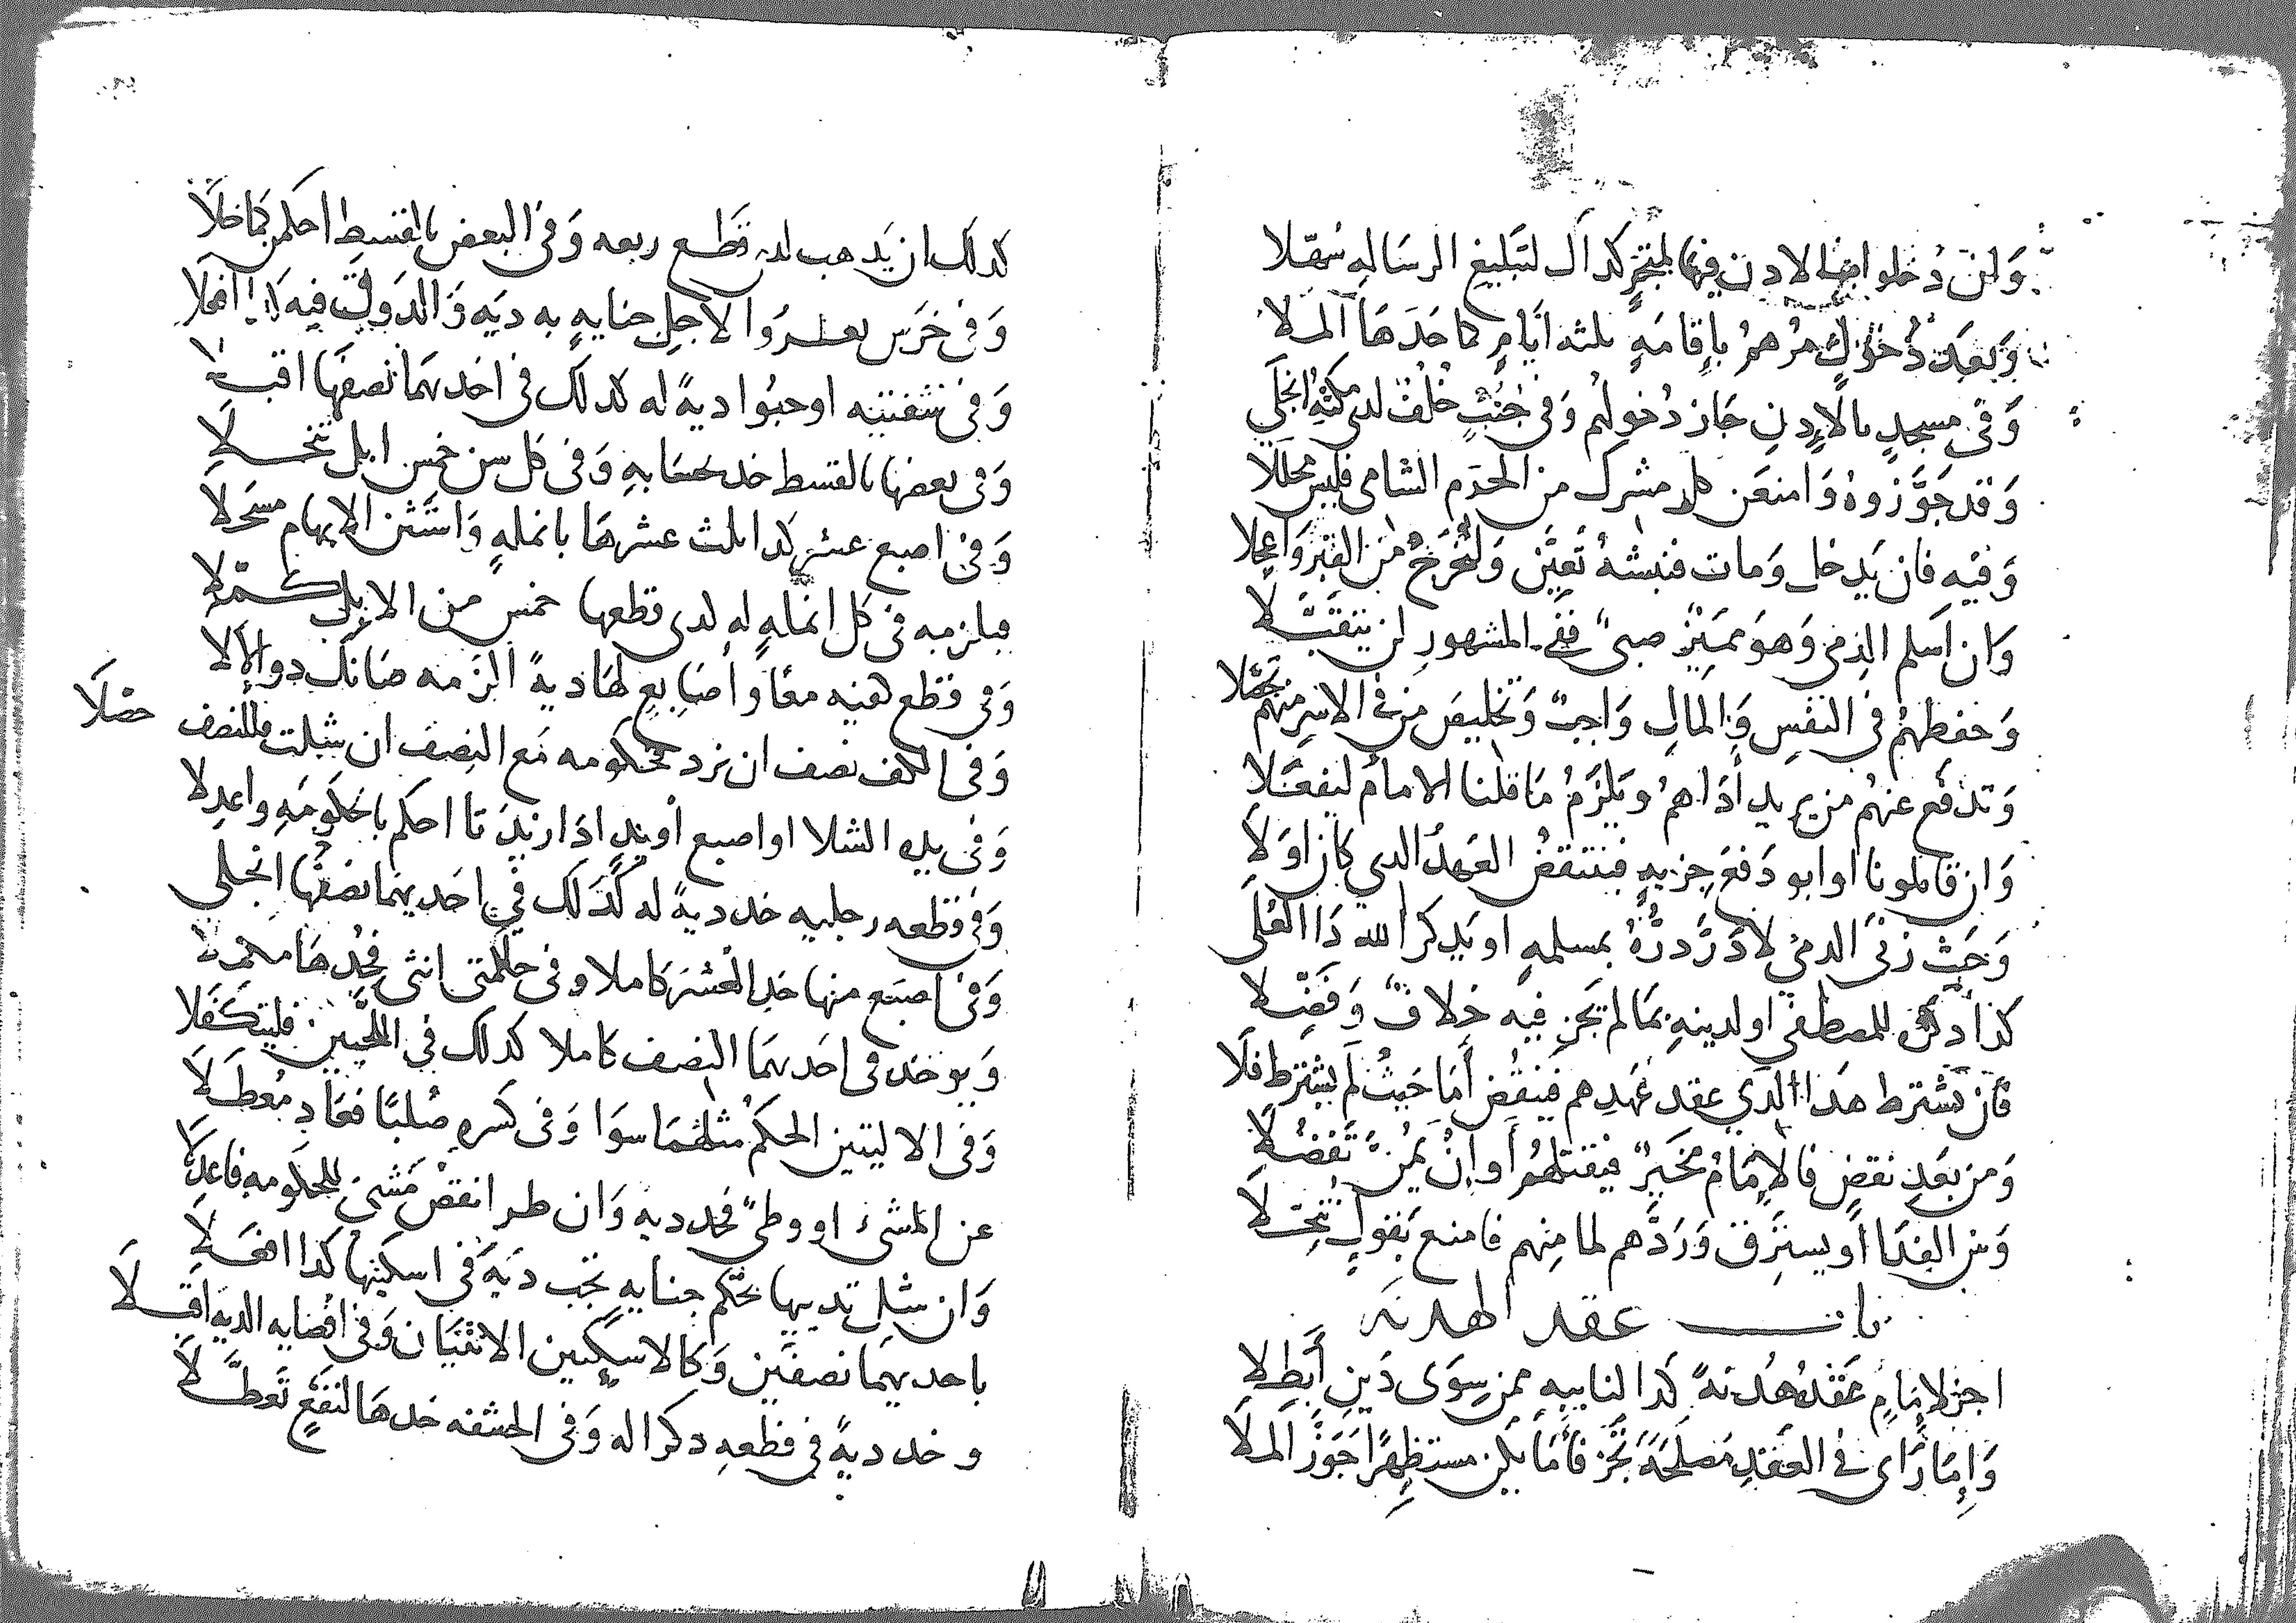 وَلن دُخلوا ايضا لادن فيها لمتجرٍ كداك لتَبليغ الرسَاله سُهّلا
وَبعَد دُخولٍ مرْهمُ بإقامَهٍ ثلثه ايَامٍ كما حَدَهَا الملا
وَفى مسجدٍ بالإدنِ جَاز دُخولهم وَفى جُنُبٍ خُلفٌ لدى مكثِه انجلَى
وَقد جَوَّزوهُ وَامنعَن كل مشرك من الحرَم الشامى فليس محللا
وَفيْه فان يَدخل وَمات فنبشهُ تَعيَّن وَلتُخرَجْ من القبْر وَاعجلا
وَان اسلم الذمى وَهوَ مميّز صبىٌ ففى المشهورِ لن يتقبّلا
وَحفظهمُ فى النفسِ وَالمالِ وَاجبٌ وَتخليصَ من فى الاسْرِ منهم تحصّلا
وَتدفع عنهُم من يريد أذَاهمُ وَيلزَمُ مَا قلنا الامامُ ليفعَلا
وَان قاتلونا اوابو دَفعَ جزيهٍ فينتقضُ العَهدُ الدي كان اوَلا
وَحَيثُ زنَى الدمىُ لا دَرَّ دَرُّهُ بمسلمهٍ او يَدكر الله دَا العُلَى
كذا دكرُه للمصطفى اولدينهِ بمَا لم يَجزِ فيه خلافٌ وَفصّلا
فان نشترط هدا الدي عقد عَهدِهم فينقُض أمَا حَيثُ لم يشترط فلا
وَمن بَعدِ نقضٍ فالإمَامُ مخَيرٌ فيقتلهمُ أو إنْ يمُنَّ تَفضُلا
وَمن الفدَا أو يستَرِق وَرَدَّهم لما منِهم فامنع بقولٍ تنحّلا
باب عقد الهدنه
اجز لإمَامٍ عَقدُ هُدنهً كدا لنايبهِ ممن سِوَى دَينِ أبطلا
وَإِمَا رَاى فى العَقدِ مَصلحَهَ يَجُز فأمَا يكن مستظهِرًا جَوَزَ الملا
كدلك ان يَدهب لدى قطع ربعه وَفى البعض بالقسطِ احكمن كما خلا
وَفى خرَسِ لاجل جنايهٍ به ديَه وَالدَوق فيه كدا افعلا
وَفى شفتيه اوجبُوا ديهً له كدلك فى احديهمَا نصفهَا اقبلا
وَفى بعضها بالقسط خد بحسَابهِ وَفى كل سن خمس ابل تنحّلا
وَفى اصبع عشرٌ كدا ثلث عشرهَا بانملهٍ وَاستَثن الابهام مسجَلا
فيلزمه فى كل انملهٍ له لدى قطعها خمس من الابل كمّلا
وَفى قطع كفيه معًا وأصَابِعٍ لهَا ديهً الزمه صَانك دو الألا
وَفى الكف نصف ان نزد لحكومه مَع النصف ان شلت فللنصف حصَلا
وَفى يده الشلا او اصبع أو يدٍ ادَا زيدَتا احكم بالحكَومَهِ واعدلا
وَفى قطعه رجليه خد ديهً له كَذَلك فى احَديهمَا نصفهَا انجلى
وَفى اصبَع منها خدِ العُشرَ كاملا وفى حلمتى انثى فخُدهَا مكمّلا
وَيوخد فى احَديهمَا النصف كاملا كدلك فى اللحيَين فليتكَفَلا
وَفى الاليتين الحكمُ مثلهمَا سوَا وَفى كَسره صُلبًا فعَاد مُعطلا
عن المشىِ او وطىٍ فخد ديه وَان طرا نقصْ مَشىٍ للحكَومه فاعدلا
وَان شل تدييها بحكم جنايه تجب ديَة فى اسكتيها كدا افعَلا
باحديهمَا نصفَين وَكالاسكتين الانثيَان وَفى افضايه الديه اقبلا
و خد ديهً فى قطعهِ دكرا له وَفى الحشفه خدهَا لنَفعٍ تَعطلا